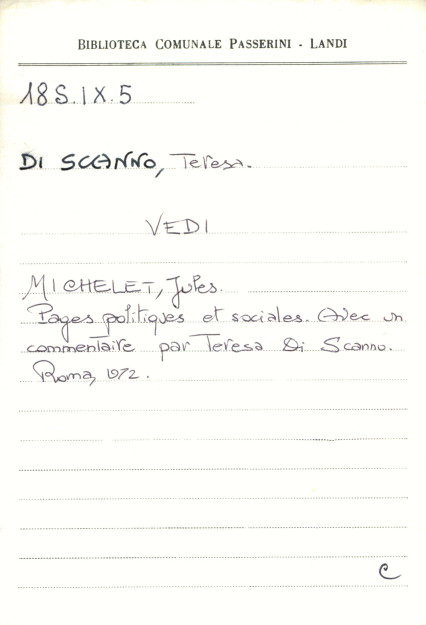 BIBLIOTECA COMUNALE PASSERINI - LANDI
18S.IX.5
DI SCANNO, Teresa.
VEDI
MICHELET, Jules.
Pages politiques et sociales. Avec un
commentaire par Teresa Di Scanno.
Roma, 1972.
C